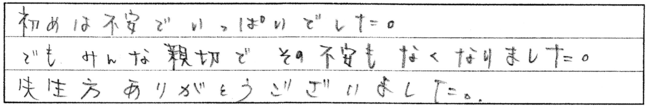 初めは不安でいっぱいでした。
でもみんな親切でその不安もなくなりました。
先生方ありがとうございました。